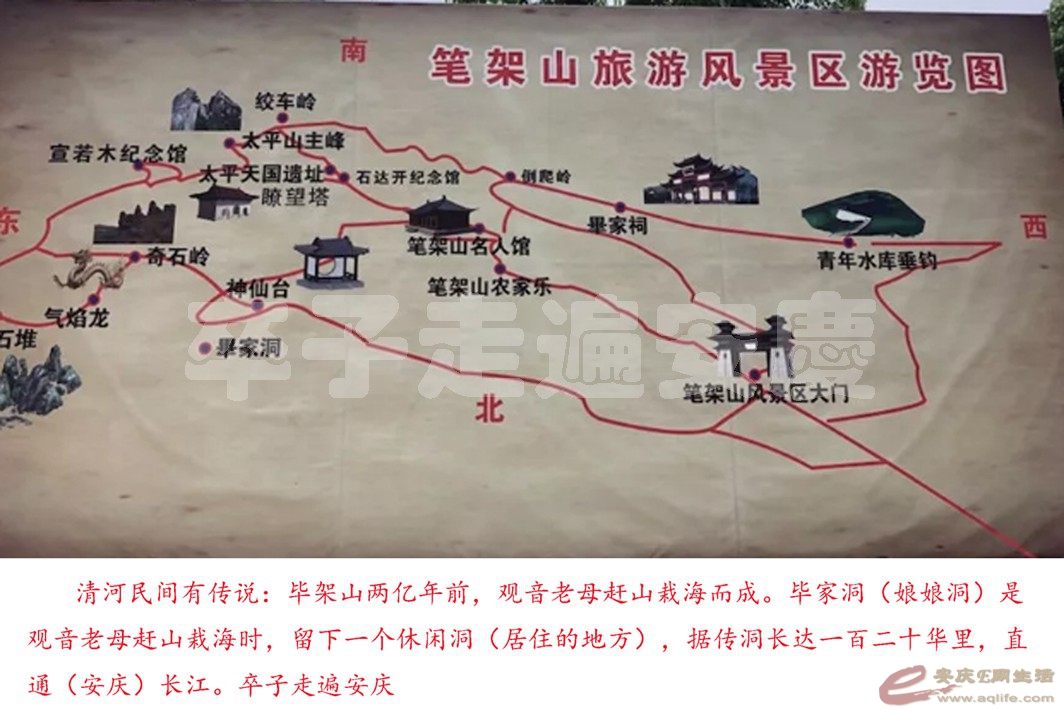 笔架山旅游风景区游览图
南
绞车岭
太平山主峰
宣若木纪念馆
太平天国遗址
石达开纪念馆
倒爬岭
瞭望塔
畢家祠
东
西
奇石岭
笔架山名人馆
青年水库垂钓
神仙台
笔架山农家乐
气焰龙
石堆
畢家洞
笔架山风景区大门
北
卒子走遍安慶
清河民间有传说：毕架山两亿年前，观音老母赶山栽海而成。毕家洞（娘娘洞）是
观音老母赶山栽海时，留下一个休闲洞（居住的地方），据传洞长达一百二十华里，直
通（安庆）长江。卒子走遍安庆
安庆E网生活
www.aqlife.com